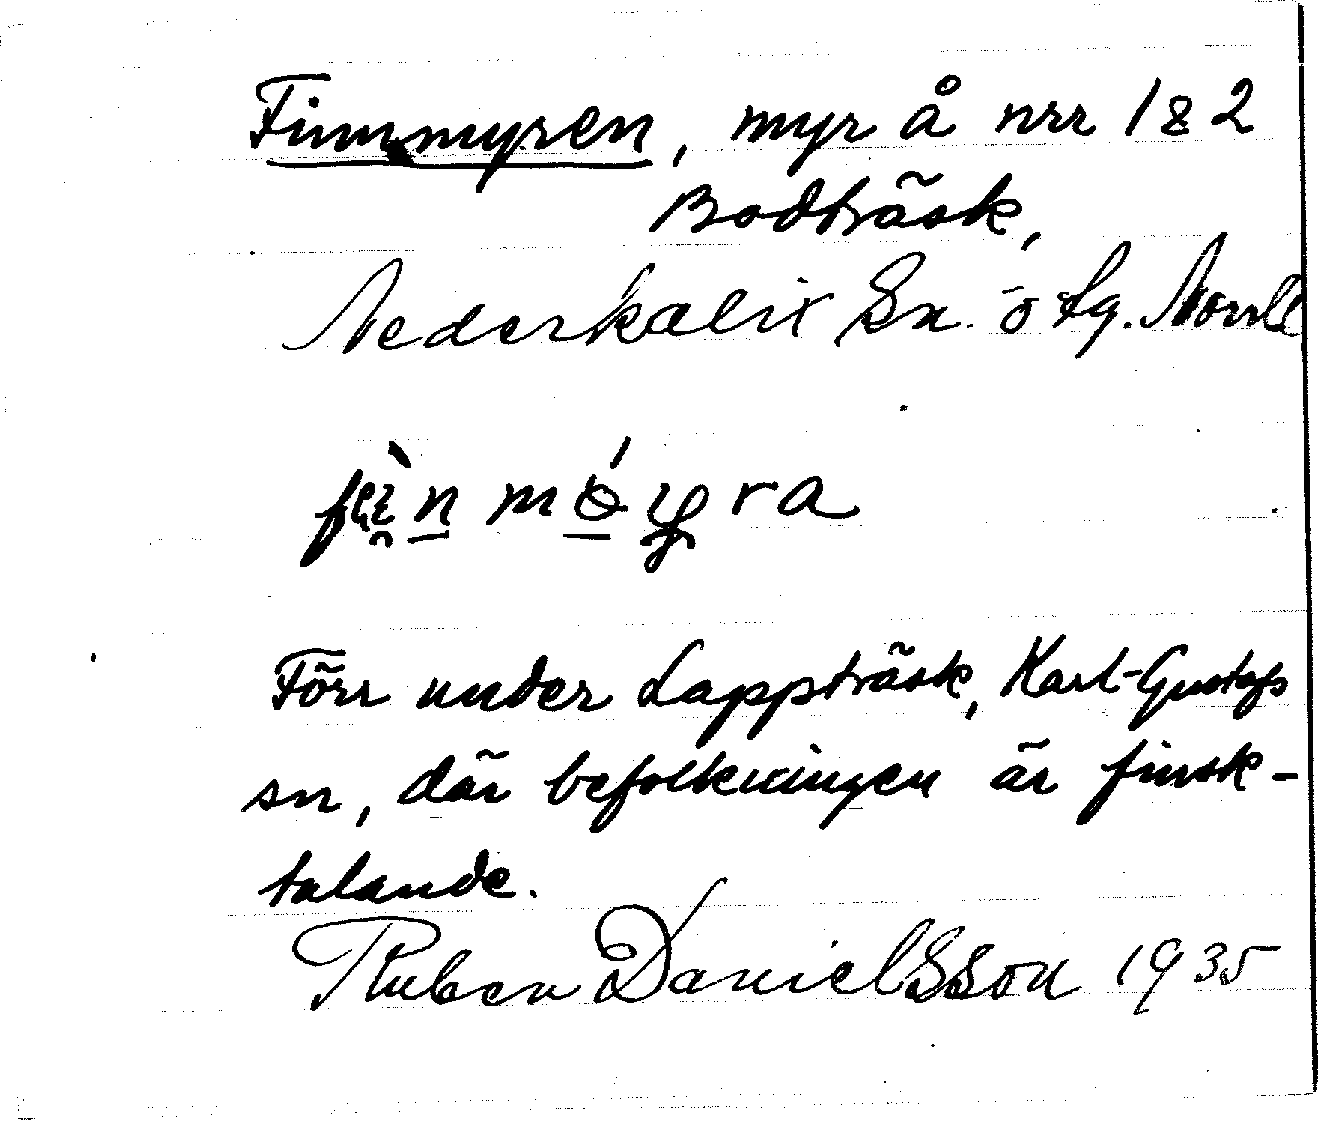 Finnmyren, myr å nrr 1 & 2
Bodträsk,
Nederkalix Sn. ö tg. Norrb
Förr under Lappträsk, Karl-Gustafs
sn, där befolkningen är finsk-
talande.
Ruben Danielsson 1935